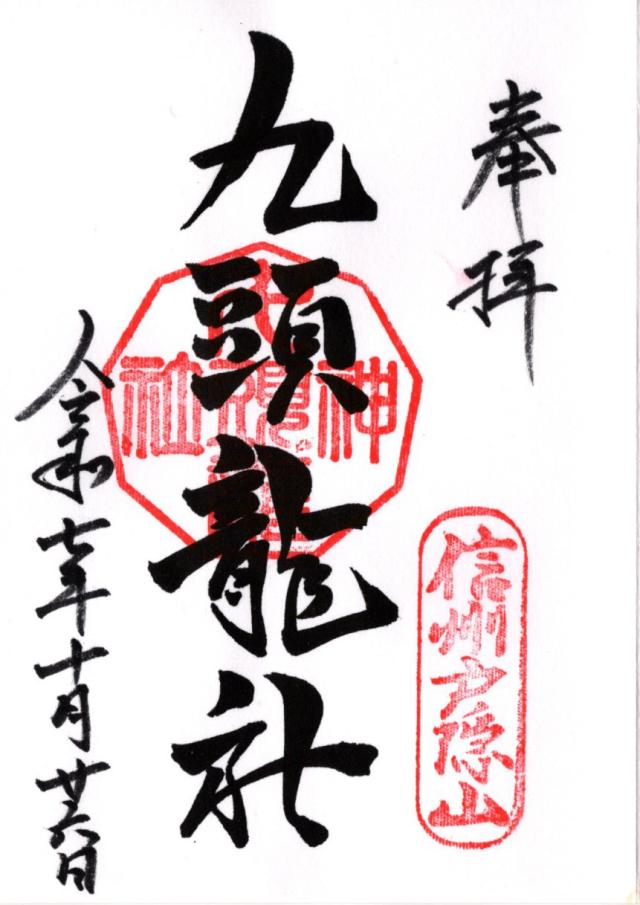 奉拝
信州戸隠山
九頭龍社
令和七年十月廿六日